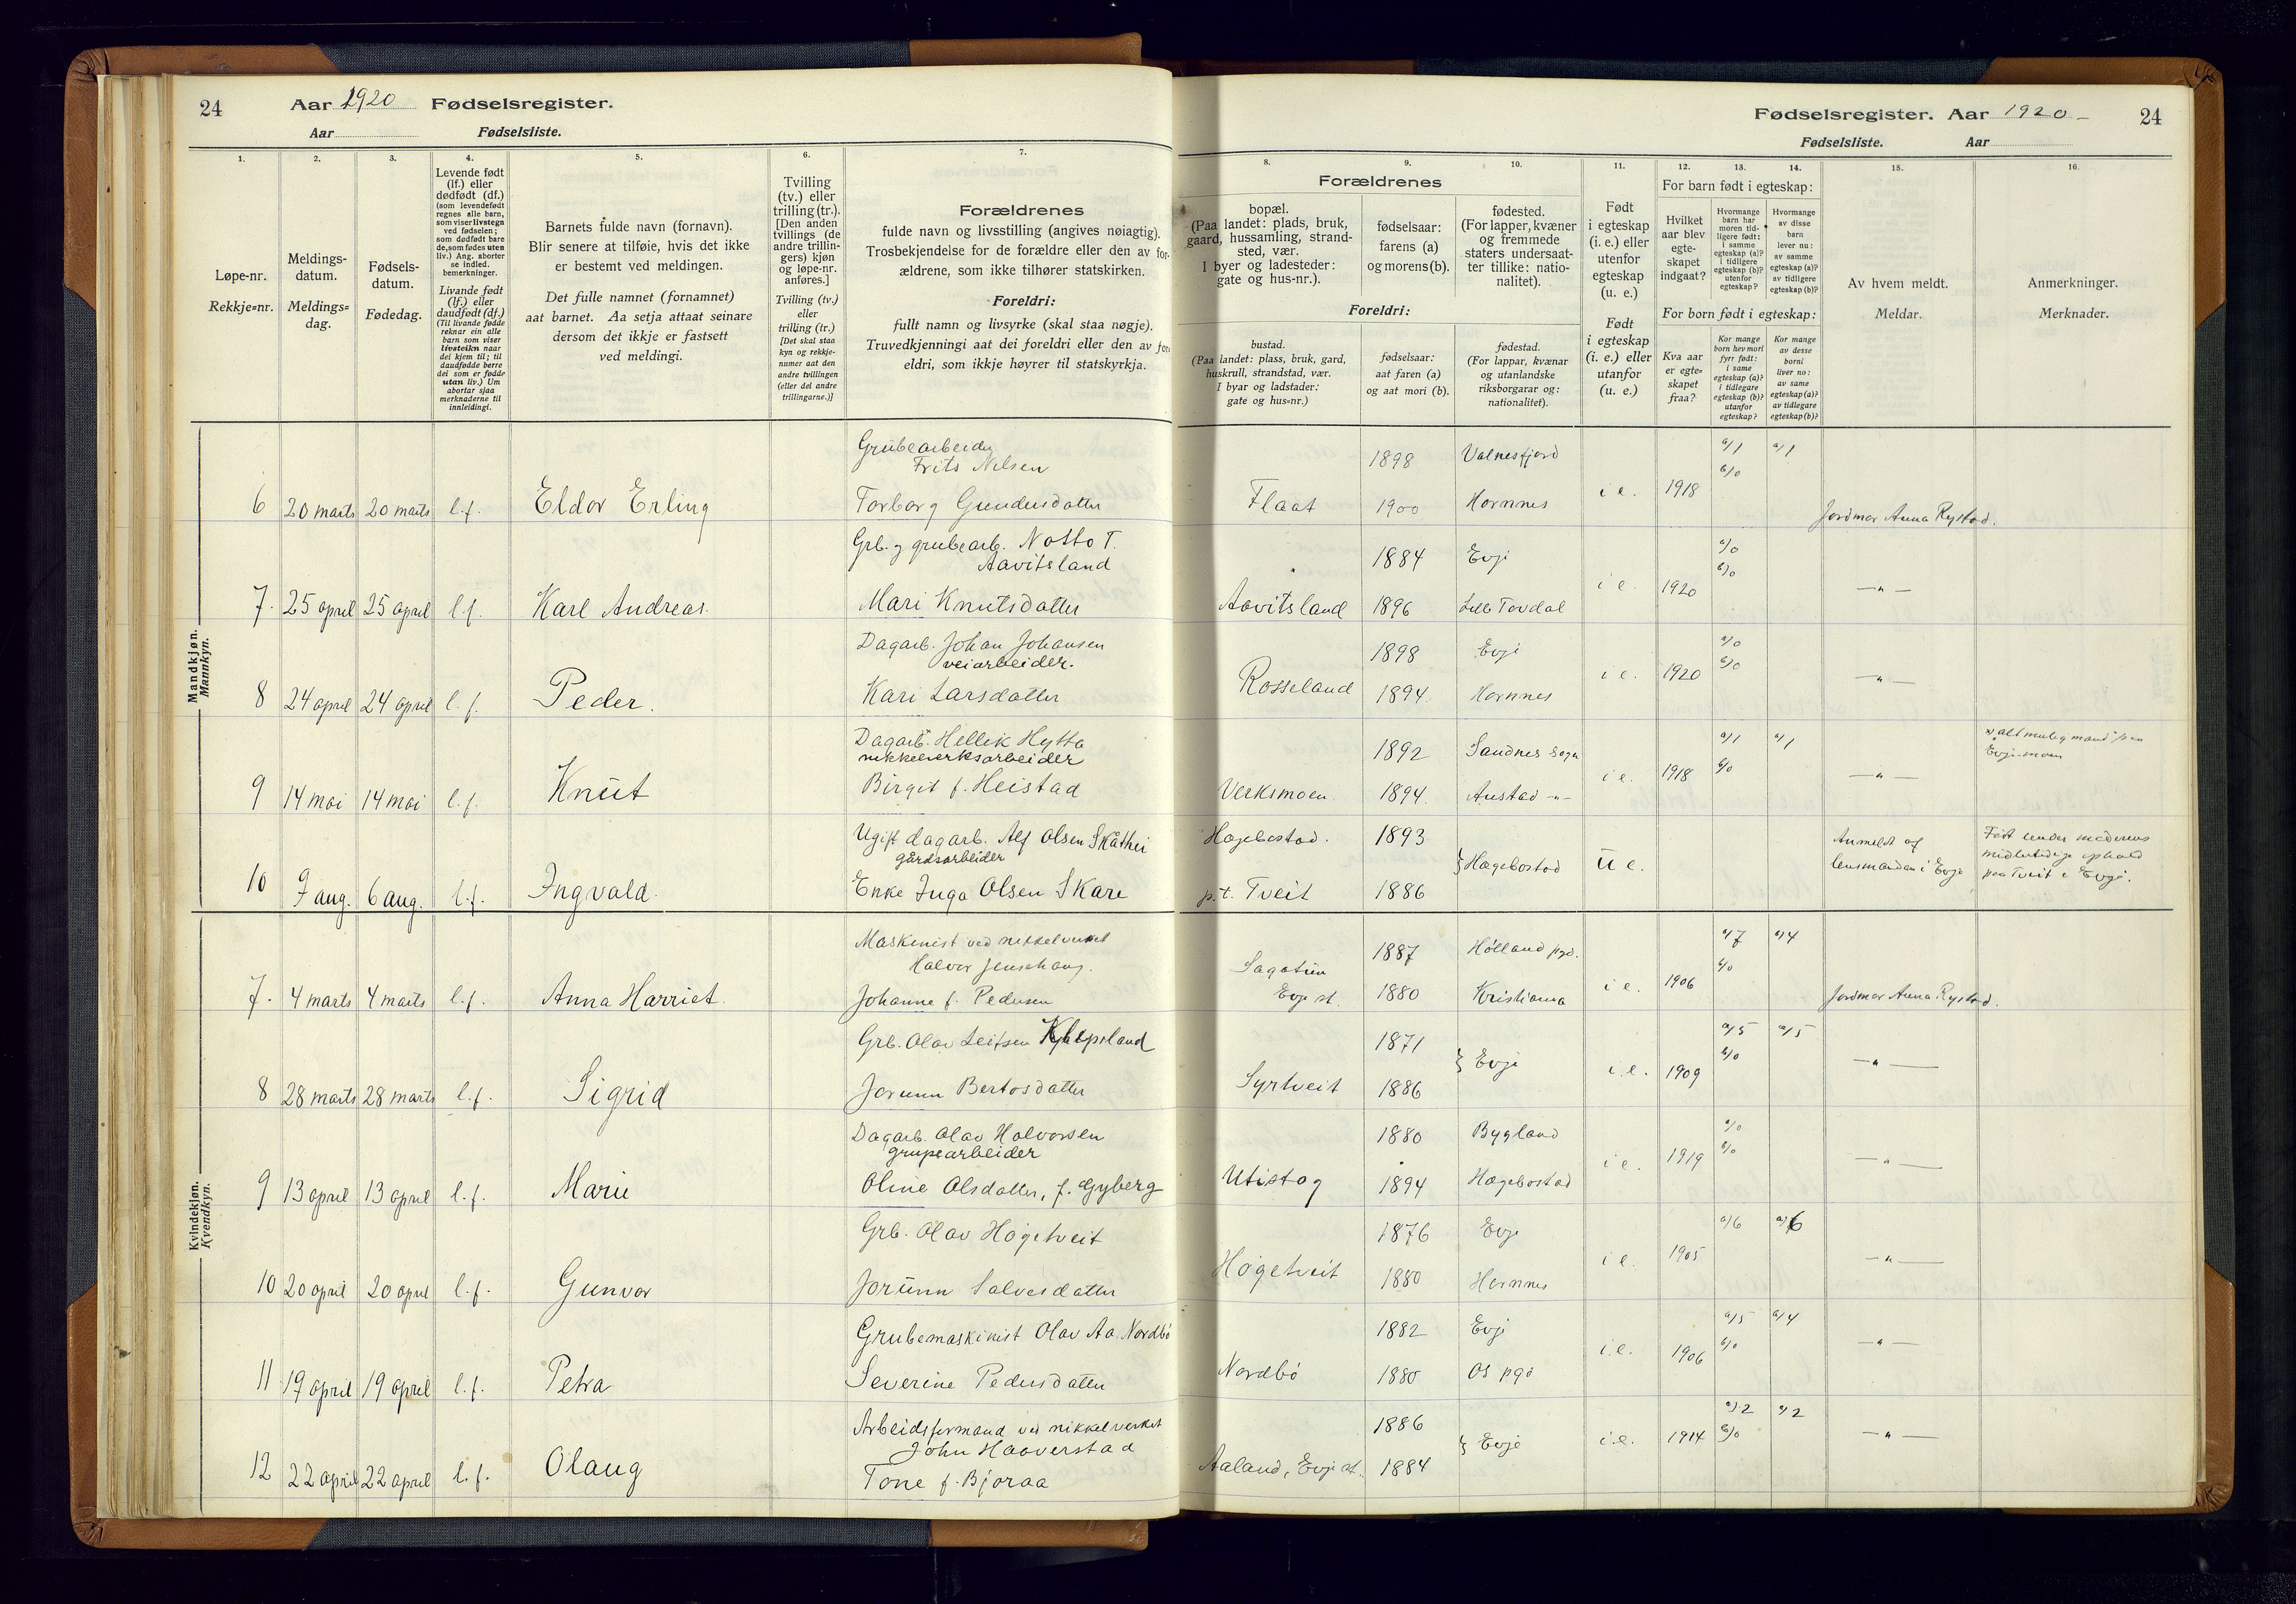 24 Aar 1920 Fødselsregister.
Aar Fødselsliste.
Fødselsregister. Aar 1920 - 24
Fødselsliste. Aar
1. 2. 3. 4. 5. 6. 7.
Løpe-nr.
Rekkje-nr.
Meldings-
datum.
Meldings-
dag.
Fødsels-
datum.
Fødedag.
Levende født
(lf.) eller
dødfødt (df.)
(som levendefødt
regnes alle barn,
som viser livstegn
ved fødselen;
som dødfødt bare
de, som fødes uten
liv.) Ang. aborter
se indled.
bemerkninger.
Livande født
(lf.) eller
daudfødt (df.)
(Til livande fødde
reknar ein alle
barn som viser
livsteikn naar
dei kjem til; til
daudfødde berre
dei som er fødde
utan liv.) Um
abortar sjaa
merknaderne til
innleidingi.
Barnets fulde navn (fornavn).
Blir senere at tilføie, hvis det ikke
er bestemt ved meldingen.
Det fulle namnet (fornamnet)
aat barnet. Aa setja attaat seinare
dersom det ikkje er fastsett
ved meldingi.
Tvilling
(tv.) eller
trilling (tr.).
[Den anden
tvillings (de
andre trillin-
gers) kjøn
og løpe-nr.
anføres.]
Tvilling (tv.)
eller
trilling (tr.)
[Det skal staa
kyn og rekkje-
numer aat den
andre tvillingen
(eller dei andre
trillingarne.)]
Forældrenes
fulde navn og livsstilling (angives nøiagtig).
Trosbekjendelse for de forældre eller den av for-
ældrene, som ikke tilhører statskirken.
Foreldri:
fullt namn og livsyrke (skal staa nøgje).
Truvedkjenningi aat dei foreldri eller den av for-
eldri, som ikkje høyrer til statskyrkja.
8. 9. 10. 11. 12. 13. 14. 15. 16.
Forældrenes
bopæl.
(Paa landet: plads, bruk,
gaard, hussamling, strand-
sted, vær.
I byer og ladesteder:
gate og hus-nr.).
fødselsaar:
farens (a)
og morens (b).
fødested.
(For lapper, kvæner
og fremmede
staters undersaat-
ter tillike: natio-
nalitet).
Foreldri:
bustad.
(Paa landet: plass, bruk, gard,
huskrull, strandstad, vær.
I byar og ladstader:
gate og hus-nr.)
fødselsaar:
aat faren (a)
og aat mori (b).
fødestad.
(For lappar, kvænar
og utanlandske
riksborgarar og:
nationalitet).
Født
i egteskap
(i. e.) eller
utenfor
egteskap
(u. e.)
Født
i egteskap
(i. e.) eller
utanfor
(u. e.)
For barn født i egteskap:
Hvilket
aar blev
egte-
skapet
indgaat?
Hvormange
barn har
moren tid-
ligere født:
i samme
egteskap (a)?
i tidligere
egteskap (b)?
utenfor
egteskap?
Hvormange
av disse
barn
lever nu:
av samme
egteskap (a)?
av tidligere
egteskap (b)?
For born født i egteskap:
Kva aar
er egte-
skapet
fraa?
Kor mange
born hev mori
fyrr født:
i same
egteskap (a)?
i tidlegare
egteskap (b)?
utanfor
egteskap?
Kor mange
av desse
borni
liver no:
av same
egteskap (a)?
av tidlegare
egteskap (b)?
Av hvem meldt.
Meldar.
Anmerkninger.
Merknader.
Mandkjøn.
Mannkyn.
Grubearbeider
Frits Nilsen 1898 Valnesfjord a/1 a/1
b/0
6 20 marts 20 marts l.f. Eldor Erling Torborg Gundersdatter Flaat 1900 Hornnes i e. 1918 Jordmor Anna Rystad.
Grb. og grubearb. Notto T.
Aavitsland 1884 Evje a/0
b/0
7. 25 april 25 april l.f. Karl Andreas. Mari Knutsdatter Aavitsland 1896 Lille Tovdal i e. 1920 — " —
Dagarb. Johan Johansen
veiarbeider. 1898 Evje a/0
b/0
8 24 april 24 april l.f. Peder. Kari Larsdatter Rosseland 1894. Hornnes i e. 1920 — " —
Dagarb. Hellik Hytta
nikkelverksarbeider 1892 Sandnes sogn a/1 a/1
b/0
9 14 mai 14 mai l.f. Knut Birgit f. Heistad Verksmoen. 1894. Austad - " - i e. 1918 — " —
Ugift dagarb. Alf Olsen Skåthei Hægebostad. 1893
gårdsarbeider
} Hægebostad u e. Anmeldt af
lensmanden i Evje
Født under moderens
midlertidige ophold
paa Tveit i Evje.
10 9 aug. 6 aug. l.f. Ingvald. Enke Inga Olsen Skare p.t. Tveit 1886
Kvindekjøn.
Kvendkyn.
Maskinist ved nikkelverket
Halvor Jenschaug. 1887 Hölland pgd. a/7 a/4
b/0
Sagatun
Evje st.
7. 4 marts 4 marts l.f. Anna Harriet. Johanne f. Pedersen 1880 Kristiania i e. 1906 Jordmor Anna Rystad.
Grb. Olav Leifsen Klepsland 1871 a/5 a/5
b/0
8 28 marts 28 marts l.f. Sigrid Jorunn Bertosdatter Syrtveit 1886 } Evje i.e. 1909 — " —
Dagarb. Olav Halvorsen
grupearbeider 1880 Bygland a/0
b/0
9 13 april 13 april l.f. Marie Oline Olsdatter, f. Gyberg Utistog 1894 Hægebostad i e. 1919 — " —
Grb. Olav Högetveit 1876 Evje a/6 a/6
10 20 april 20 april l.f. Gunvor Jorunn Salvesdatter Högetveit 1880 Hornnes i e. 1905 — " —
Grubemaskinist Olav Aa. Nordbö 1882 Evje a/5 a/4
b/0
11 19 april 19 april l.f. Petra Severine Pedersdatter Nordbö 1880 Os pgd i.e. 1906 — " —
Arbeidsformand ved nikkelverket
John Haaverstad 1886 a/2 a/2
b/0
12 22 april 22 april l.f. Olaug Tone f. Bjoraa Aaland, Evje st. 1884 } Evje i.e. 1914 — " —